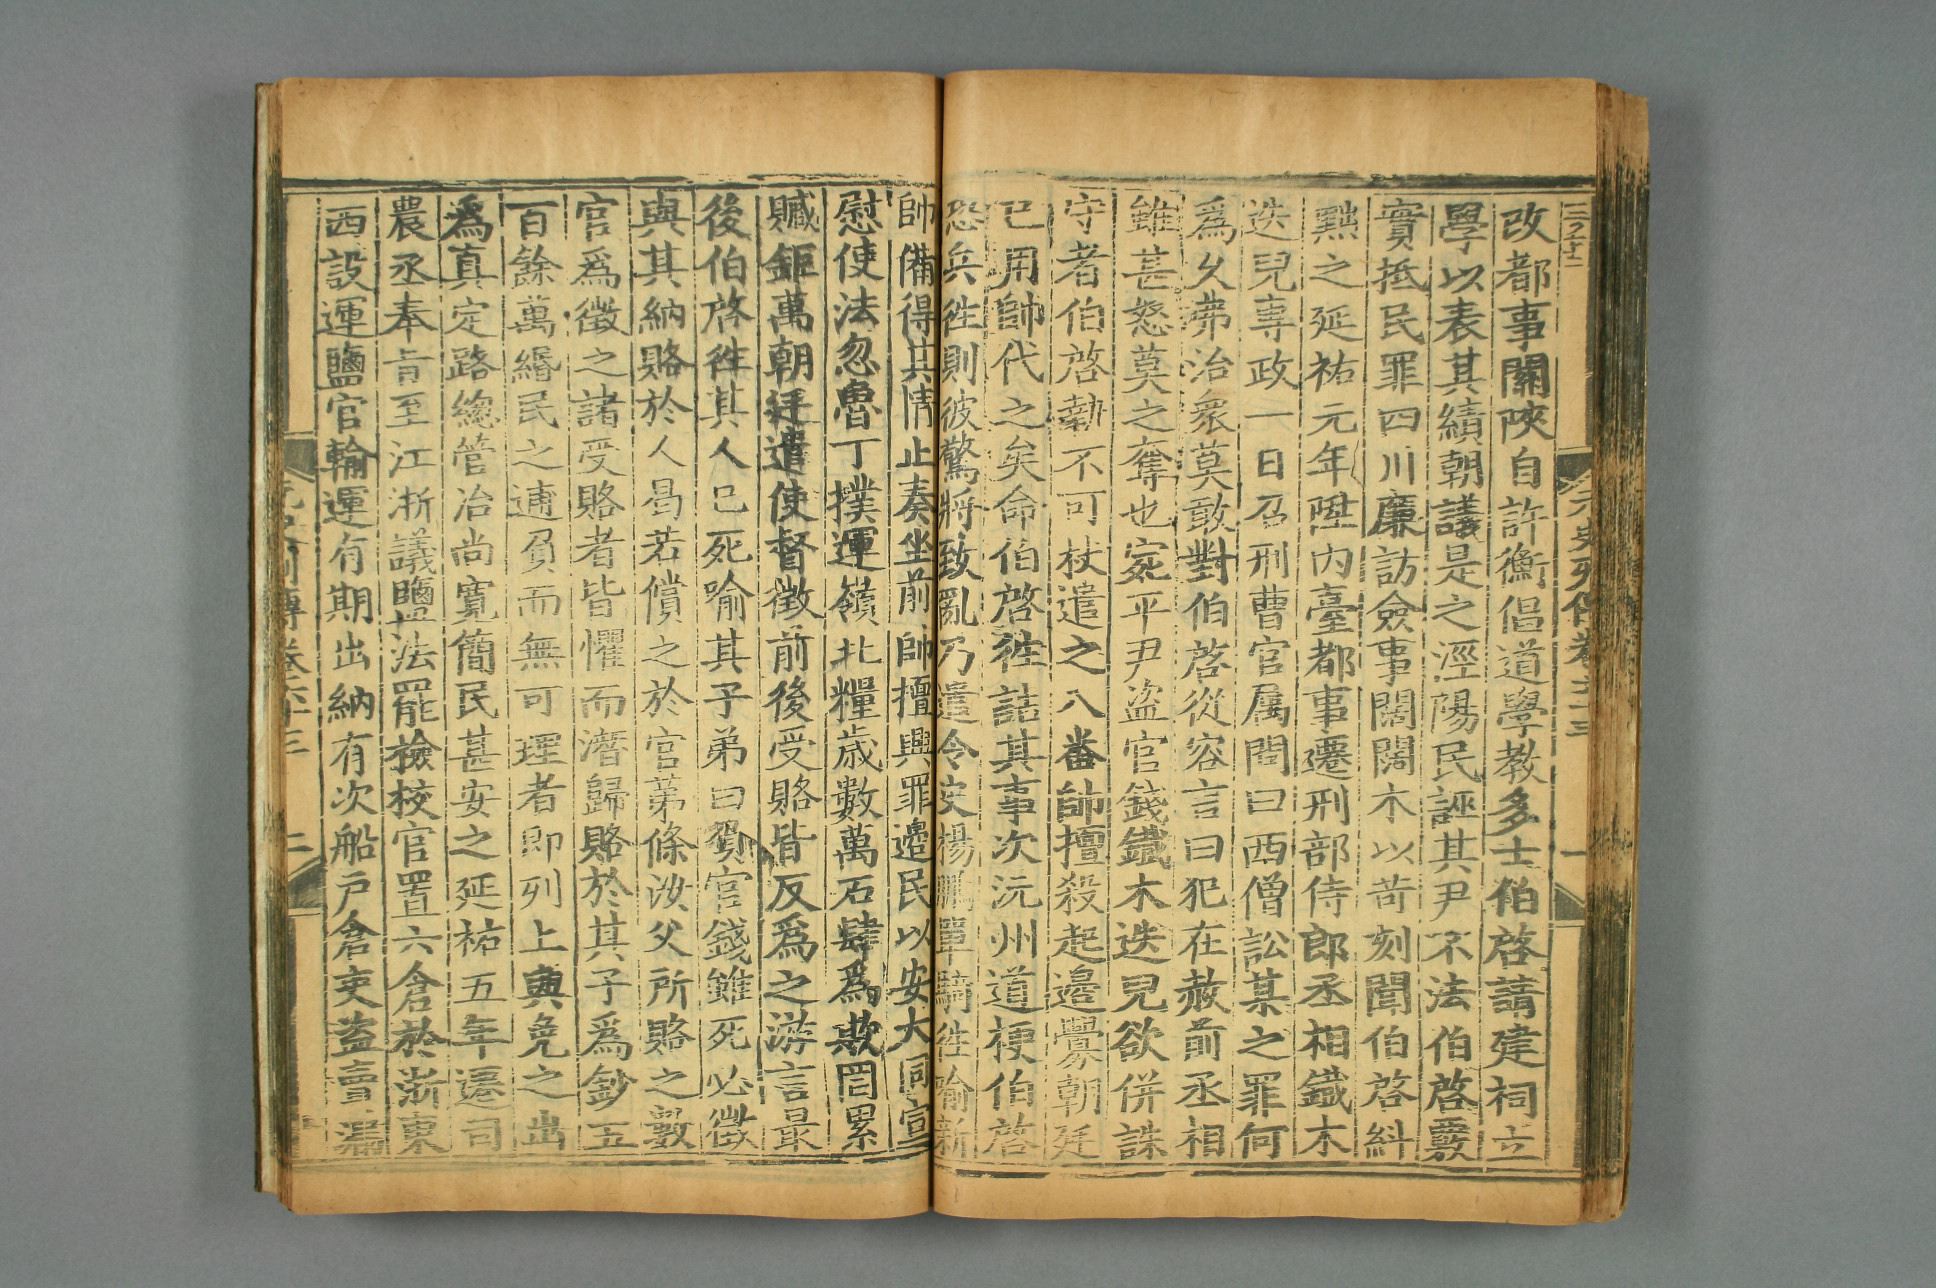 元史列傳卷六十三 一
改都事關陝自許衡倡道學教多士伯啓請建祠立
學以表其績朝議是之涇陽民誣其尹不法伯啓覈
實抵民罪四川廉訪僉事闊闊木以苛刻聞伯啓糾
黜之延祐元年陞內臺都事遷刑部侍郎丞相鐵木
迭兒專政一日召刑曹官属問曰西僧訟某之罪何
爲久弗治衆莫敢對伯啓從容言曰犯在赦前丞相
雖甚怒莫之奪也宛平尹盗官錢鐵木迭兒欲併誅
守者伯啓執不可杖遣之八番帥擅殺起邉釁朝廷
已用帥代之矣命伯啓徃詰其事次沅州道梗伯啓
恐兵徃則彼驚將致亂乃遣令史楊鵬單騎徃喻新
帥備得其情止奏坐前帥擅興罪邉民以安大同宣
慰使法忽魯丁撲運嶺北糧歳數萬石肆爲欺罔累
贓鉅萬朝廷遣使督徵前後受賂皆反爲之游言最
後伯啓徃其人已死喻其子弟曰負官錢雖死必徵
與其納賂於人曷若償之於官苐條汝父所賂之數
官爲徵之諸受賂者皆懼而潛歸賂於其子爲鈔五
百餘萬緡民之逋負而無可理者即列上與免之出
爲真定路總管冶尚寛簡民甚安之延祐五年遷司
農丞奉旨至江浙議鹽法罷檢校官置六倉於浙東
西設運鹽官輸運有期出納有次船戶倉吏盗賣漏
元史列傳卷六十三 二